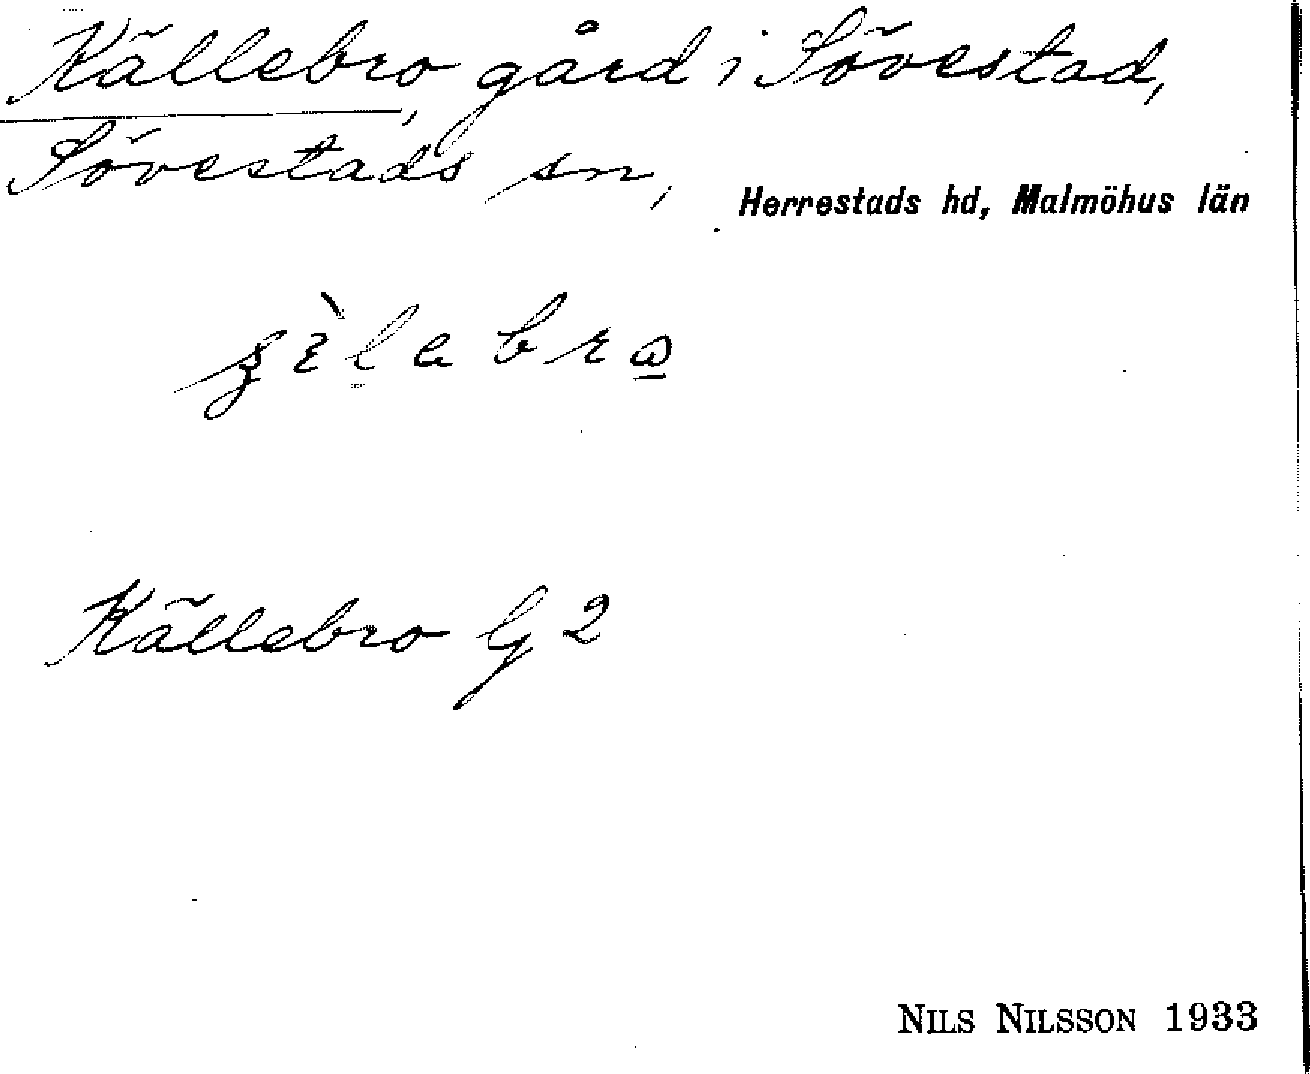 Källebro, gård i Sövestad,
Sövestads sn,
Herrestads hd, Malmöhus län
Källebro G 2
NILS NILSSON 1933